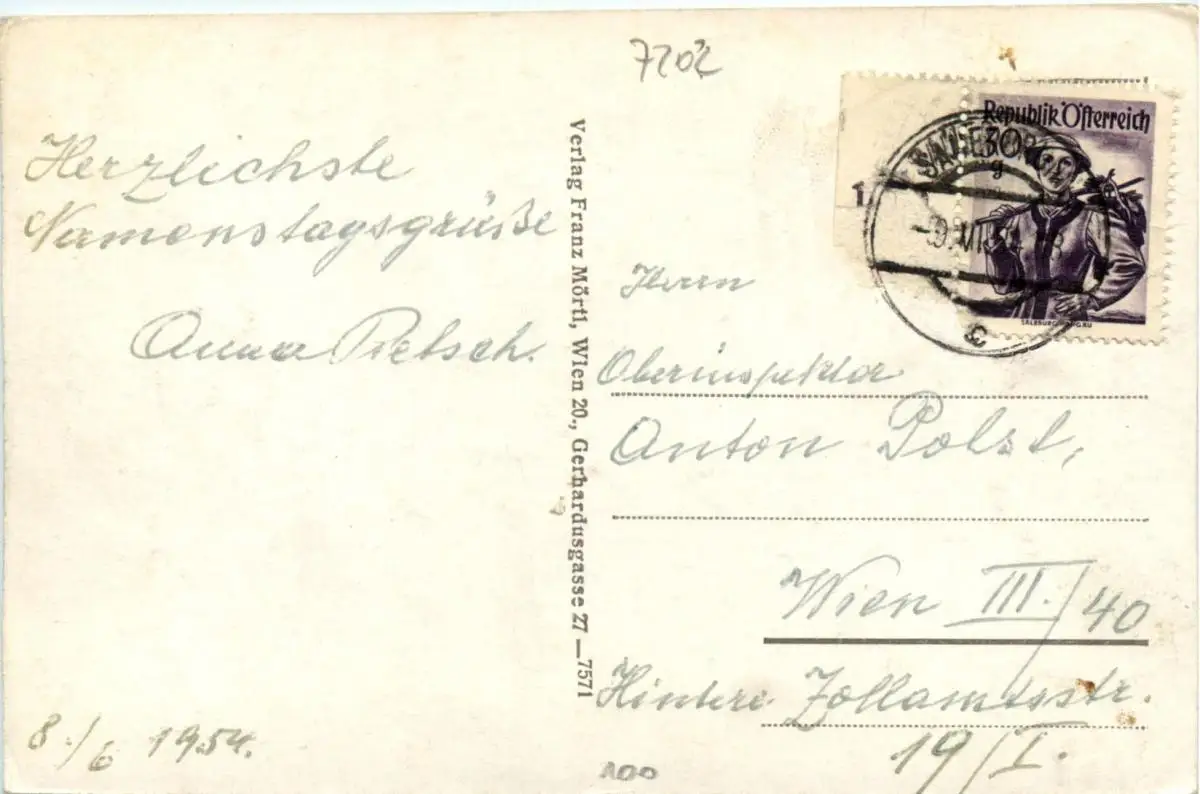 7202
Herzlichste
Namenstagsgrüße
Anna Pietsch.
8./6 1954.
Verlag Franz Mörtl, Wien 20., Gerhardusgasse 27 — 7571
Republik Österreich
1.
Herrn
Oberinspektor
Anton Polst,
Wien III./40
Hintere Zollamtsstr.
19/I.
100